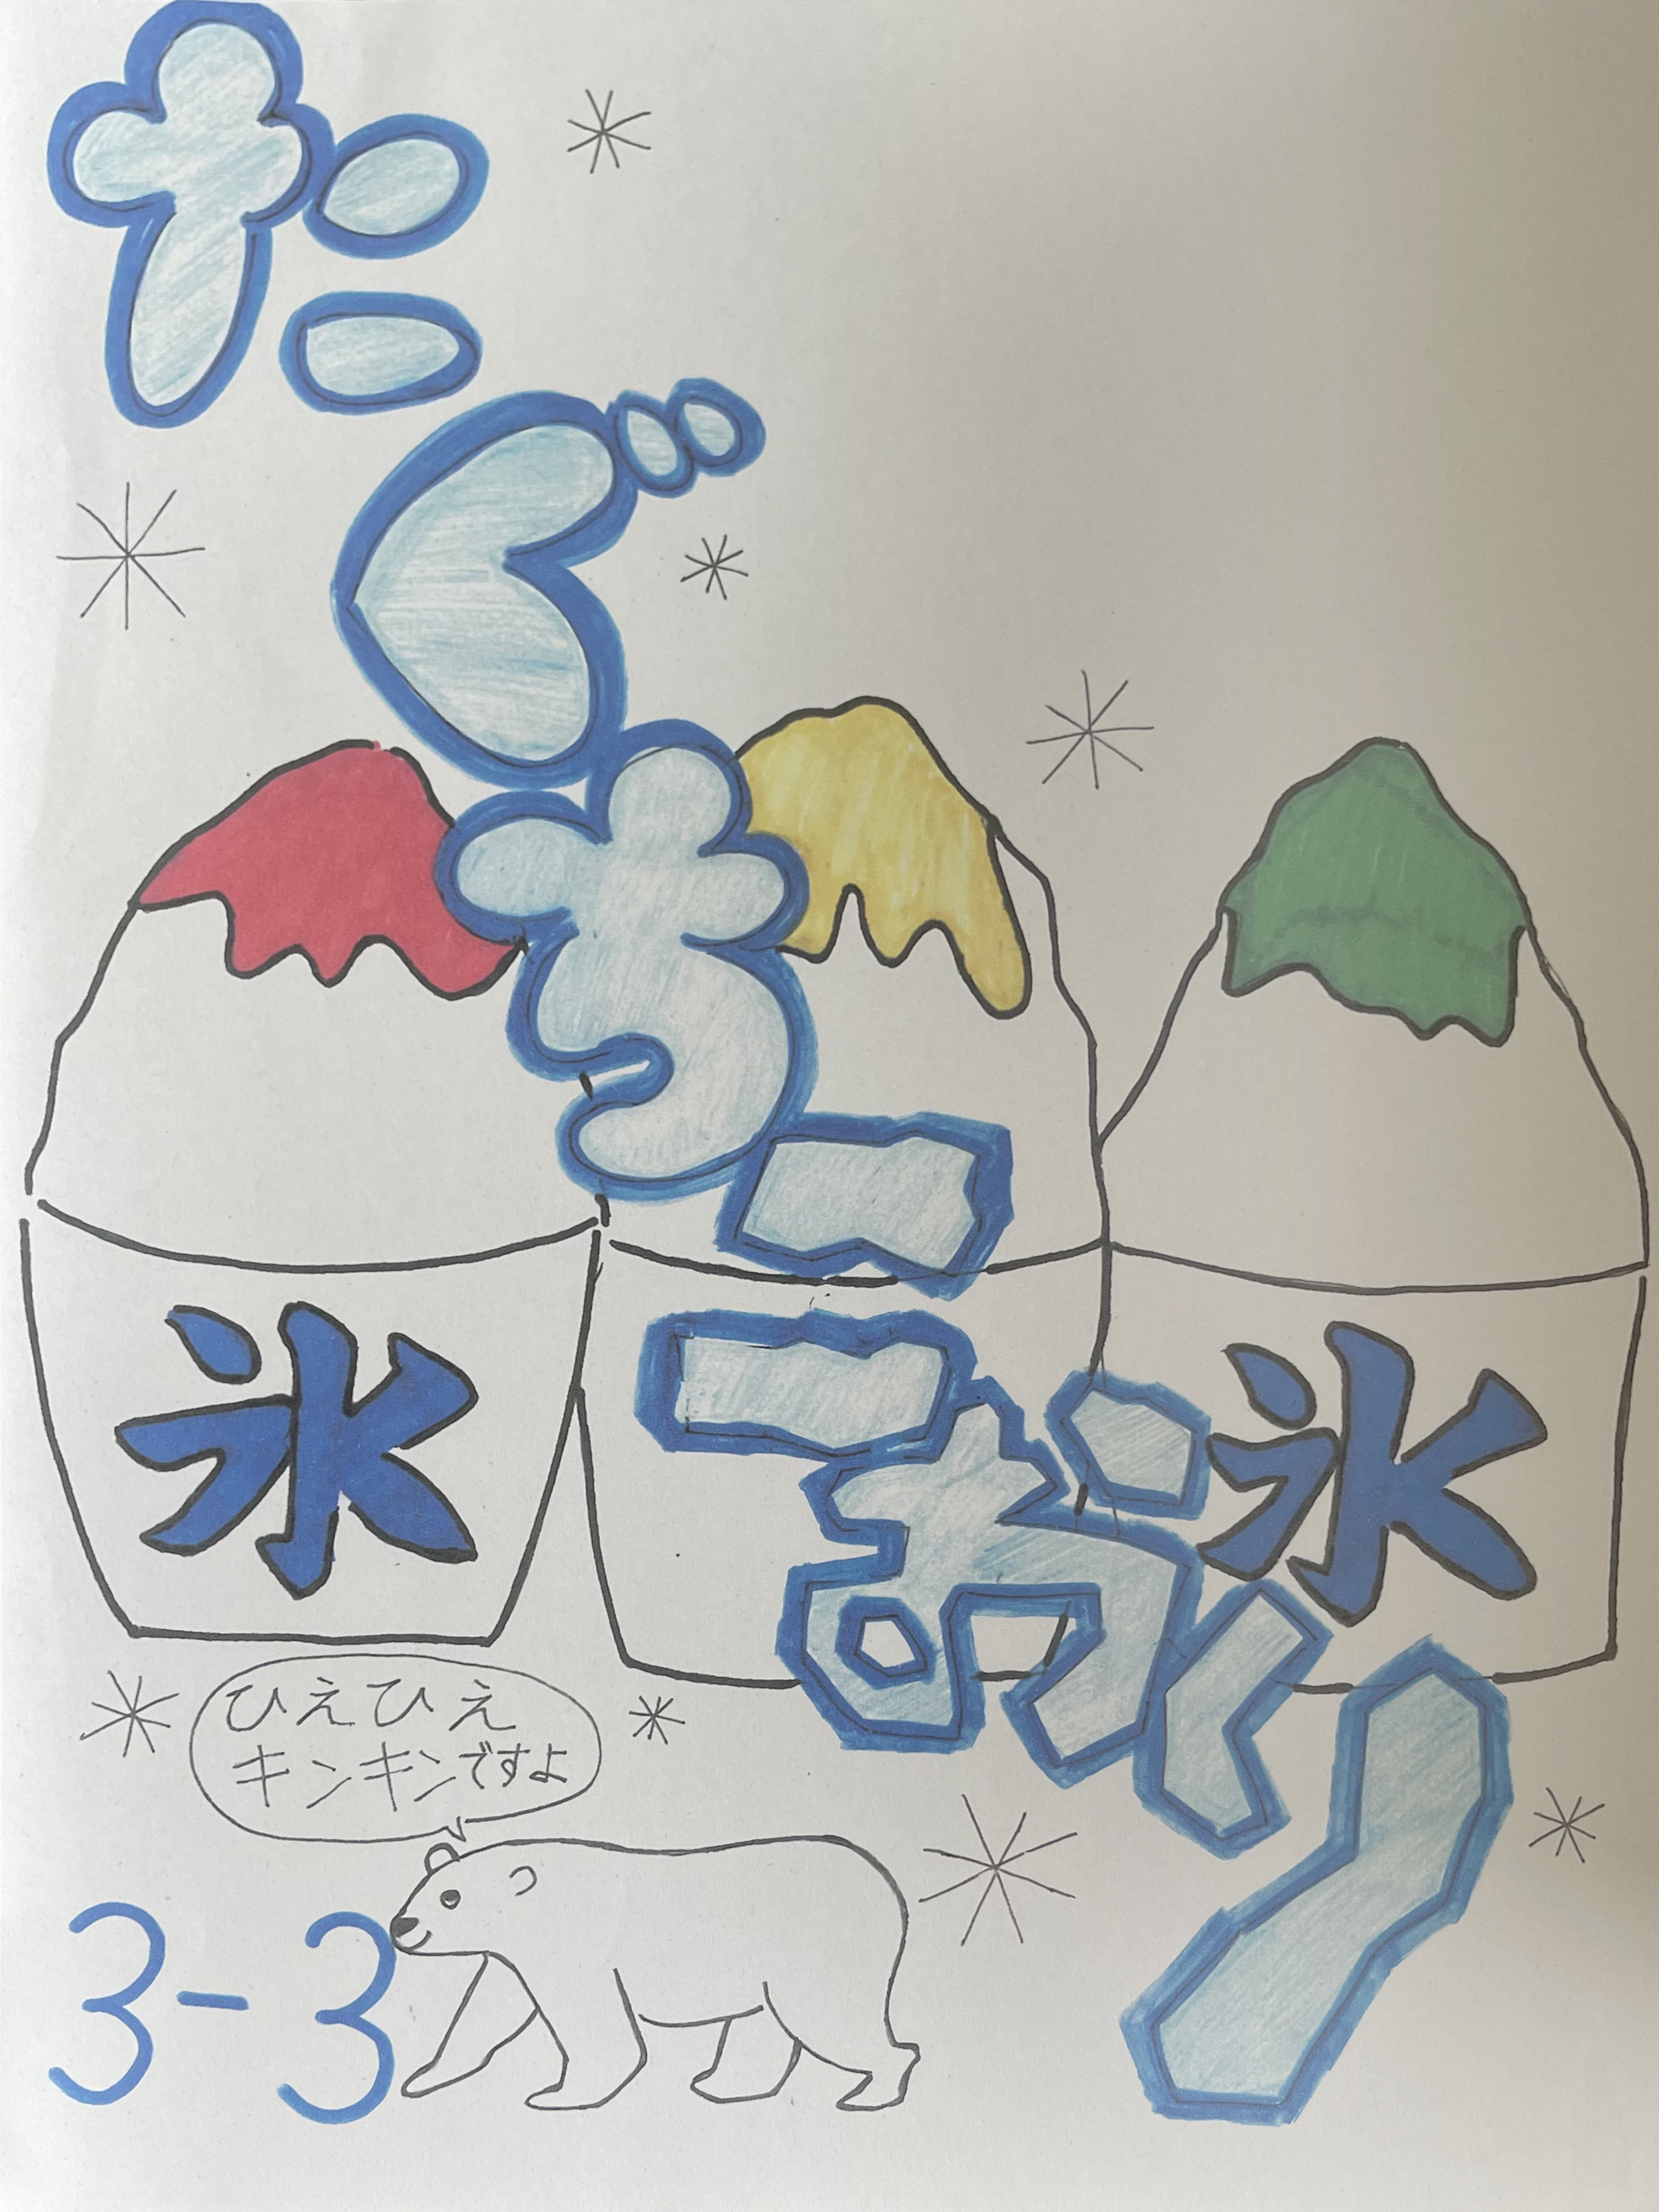 たぐちこおり
氷
氷
ひえひえ
キンキンですよ
3-3